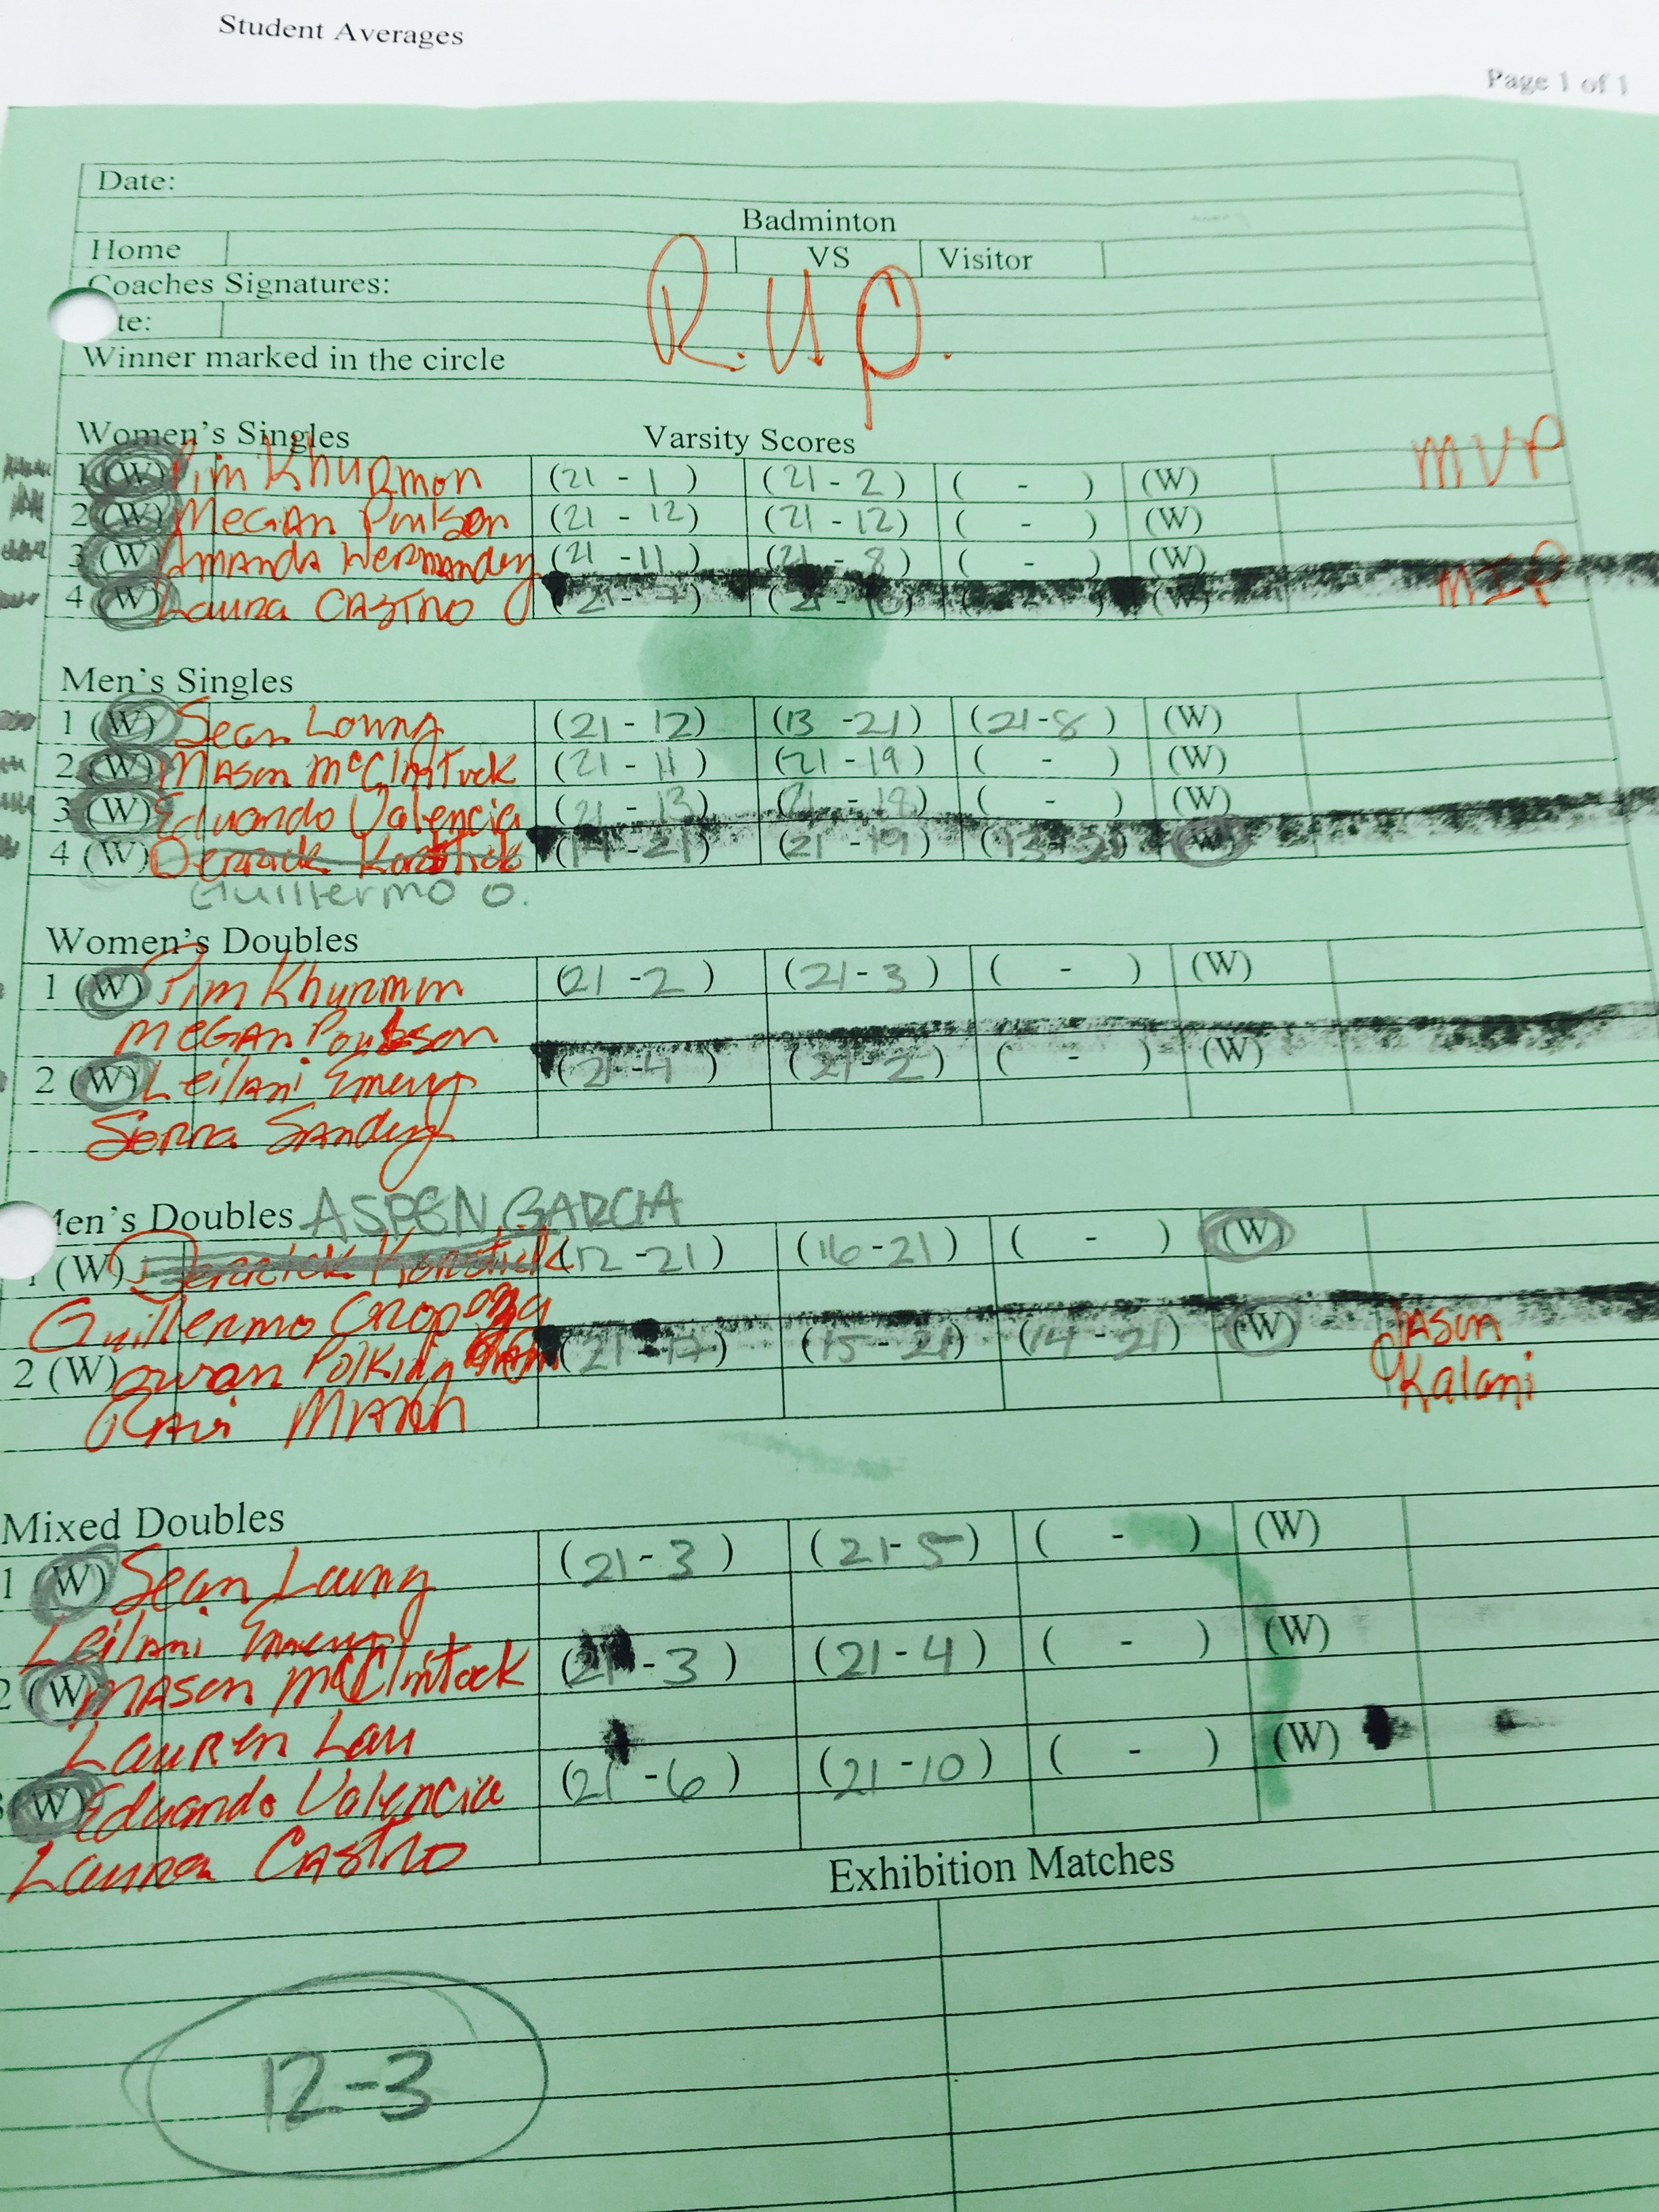 Student Averages
Page 1 of 1
Date:
Badminton
Home VS Visitor
Coaches Signatures:
te:
R.U.P.
Winner marked in the circle
Women's Singles Varsity Scores MVP
1 (W) Pim Khurmon (21 - 1) (21 - 2) ( - ) (W)
2 (W) Megan Poulson (21 - 12) (21 - 12) ( - ) (W)
3 (W) Amanda (21 - 11) (21 - 8) ( - ) (W)
4 (W) Laura Castro (21 - 7) (21 - ( - ) (W) MIP
Men's Singles
1 (W) Sean Loung (21 - 12) (13 - 21) (21-8) (W)
2 (W) Mason McClintock (21 - 11) (21 - 19) ( - ) (W)
3 (W) Eduardo Valencia (21 - 13) (21 - 18) ( - ) (W)
4 (W) Derrick - 21) (21 - 19) (13 - 21) (W)
Guillermo O.
Women's Doubles
1 (W) Pim Khurmon (21 - 2) (21 - 3) ( - ) (W)
Megan Poulson
2 (W) Leilani Emery (21 - 4) (21 - 2) ( - ) (W)
Sierra
Men's Doubles ASPEN GARCIA
1 (W) Derrick (12 - 21) (16 - 21) ( - ) (W)
Guillermo Oropeza
2 (W) (21 - 17) (15 - 21) (14 - 21) (W) Jason
Ravi Mann Kalani
Mixed Doubles
1 (W) Sean Loung (21 - 3) (21 - 5) ( - ) (W)
Leilani Emery
2 (W) Mason McClintock (21 - 3) (21 - 4) ( - ) (W)
Lauren Lau
3 (W) Eduardo Valencia (21 - 6) (21 - 10) ( - ) (W)
Laura Castro
Exhibition Matches
12-3